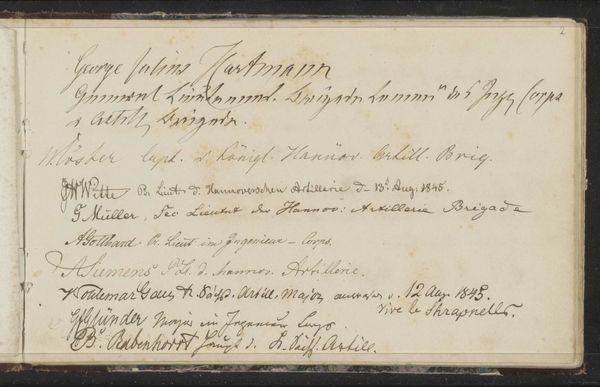 2
George Julius Hartmann
General Lieutenant. Brigade Comm. des Inge Corps
& Artill Brigade.
Möster Capt. d. Königl. Hannov. Artill. Brig.
Witte Pr. Lieut. d. Hannoverschen Artillerie d. 13t Aug. 1845.
T. Müller, Sec Lieutnt der Hannov: Artillerie Brigade
A Gotthard Pr. Lieut im Ingenieur-Corps.
A Siemens S. Lt. d. Hannov. Artillerie.
Woldemar K. Sächs. Artill. Major 12 Aug. 1845.
Vive le Shrapnells.
Gründer Major im Ingenieur Corps
B. Rabenhorst Haupt d. K. Sächs. Artill.